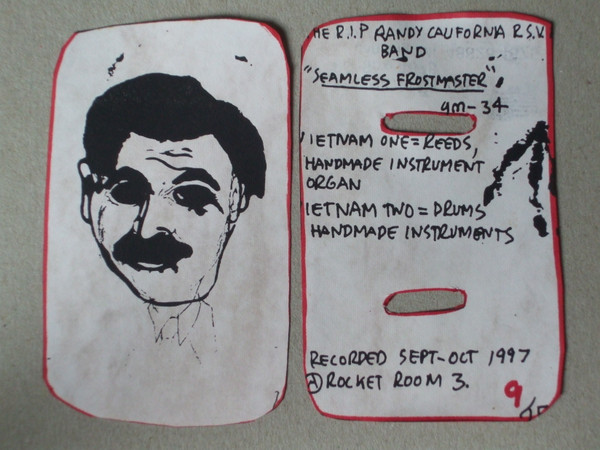 HE R.I.P RANDY CALIFORNIA R.S.V.
BAND
"SEAMLESS FROSTMASTER"
gm-34
IETNAM ONE = REEDS,
HANDMADE INSTRUMENT
ORGAN
IETNAM TWO = DRUMS
HANDMADE INSTRUMENTS
RECORDED SEPT-OCT 1997
@ ROCKET ROOM 3.
9